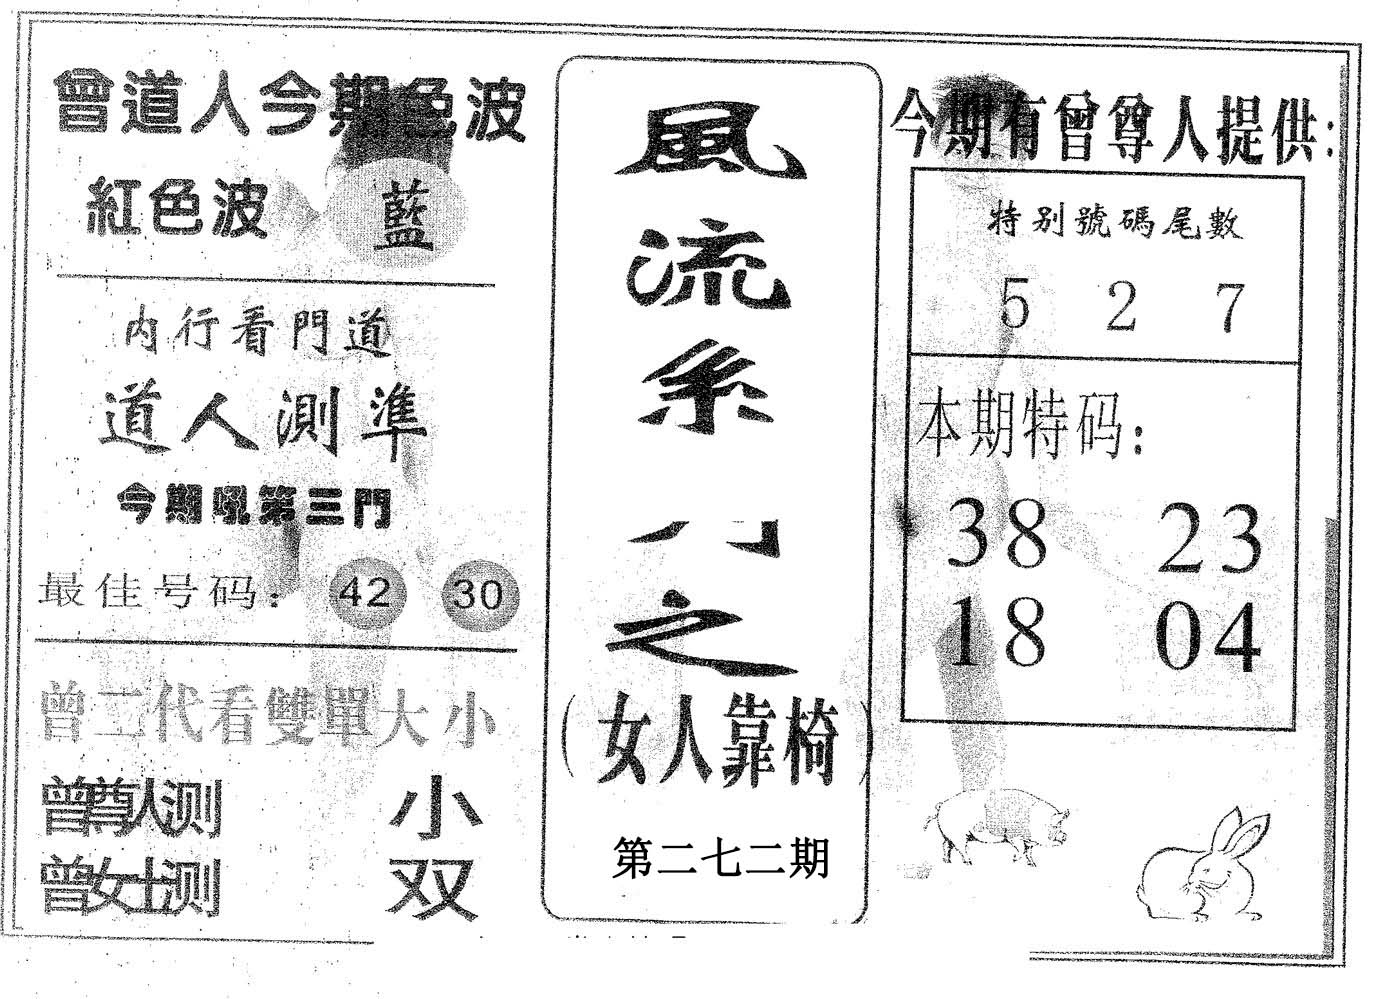 曾道人今期色波
紅色波 藍
内行看門道
道人測準
今期吼第三門
最佳号码: 42 30
曾二代看雙單大小
曾尊人测 小
曾女士测 双
風
流
系
之
(女人靠椅)
第二七二期
今期有曾尊人提供:
特别號碼尾數
5 2 7
本期特码:
38 23
18 04